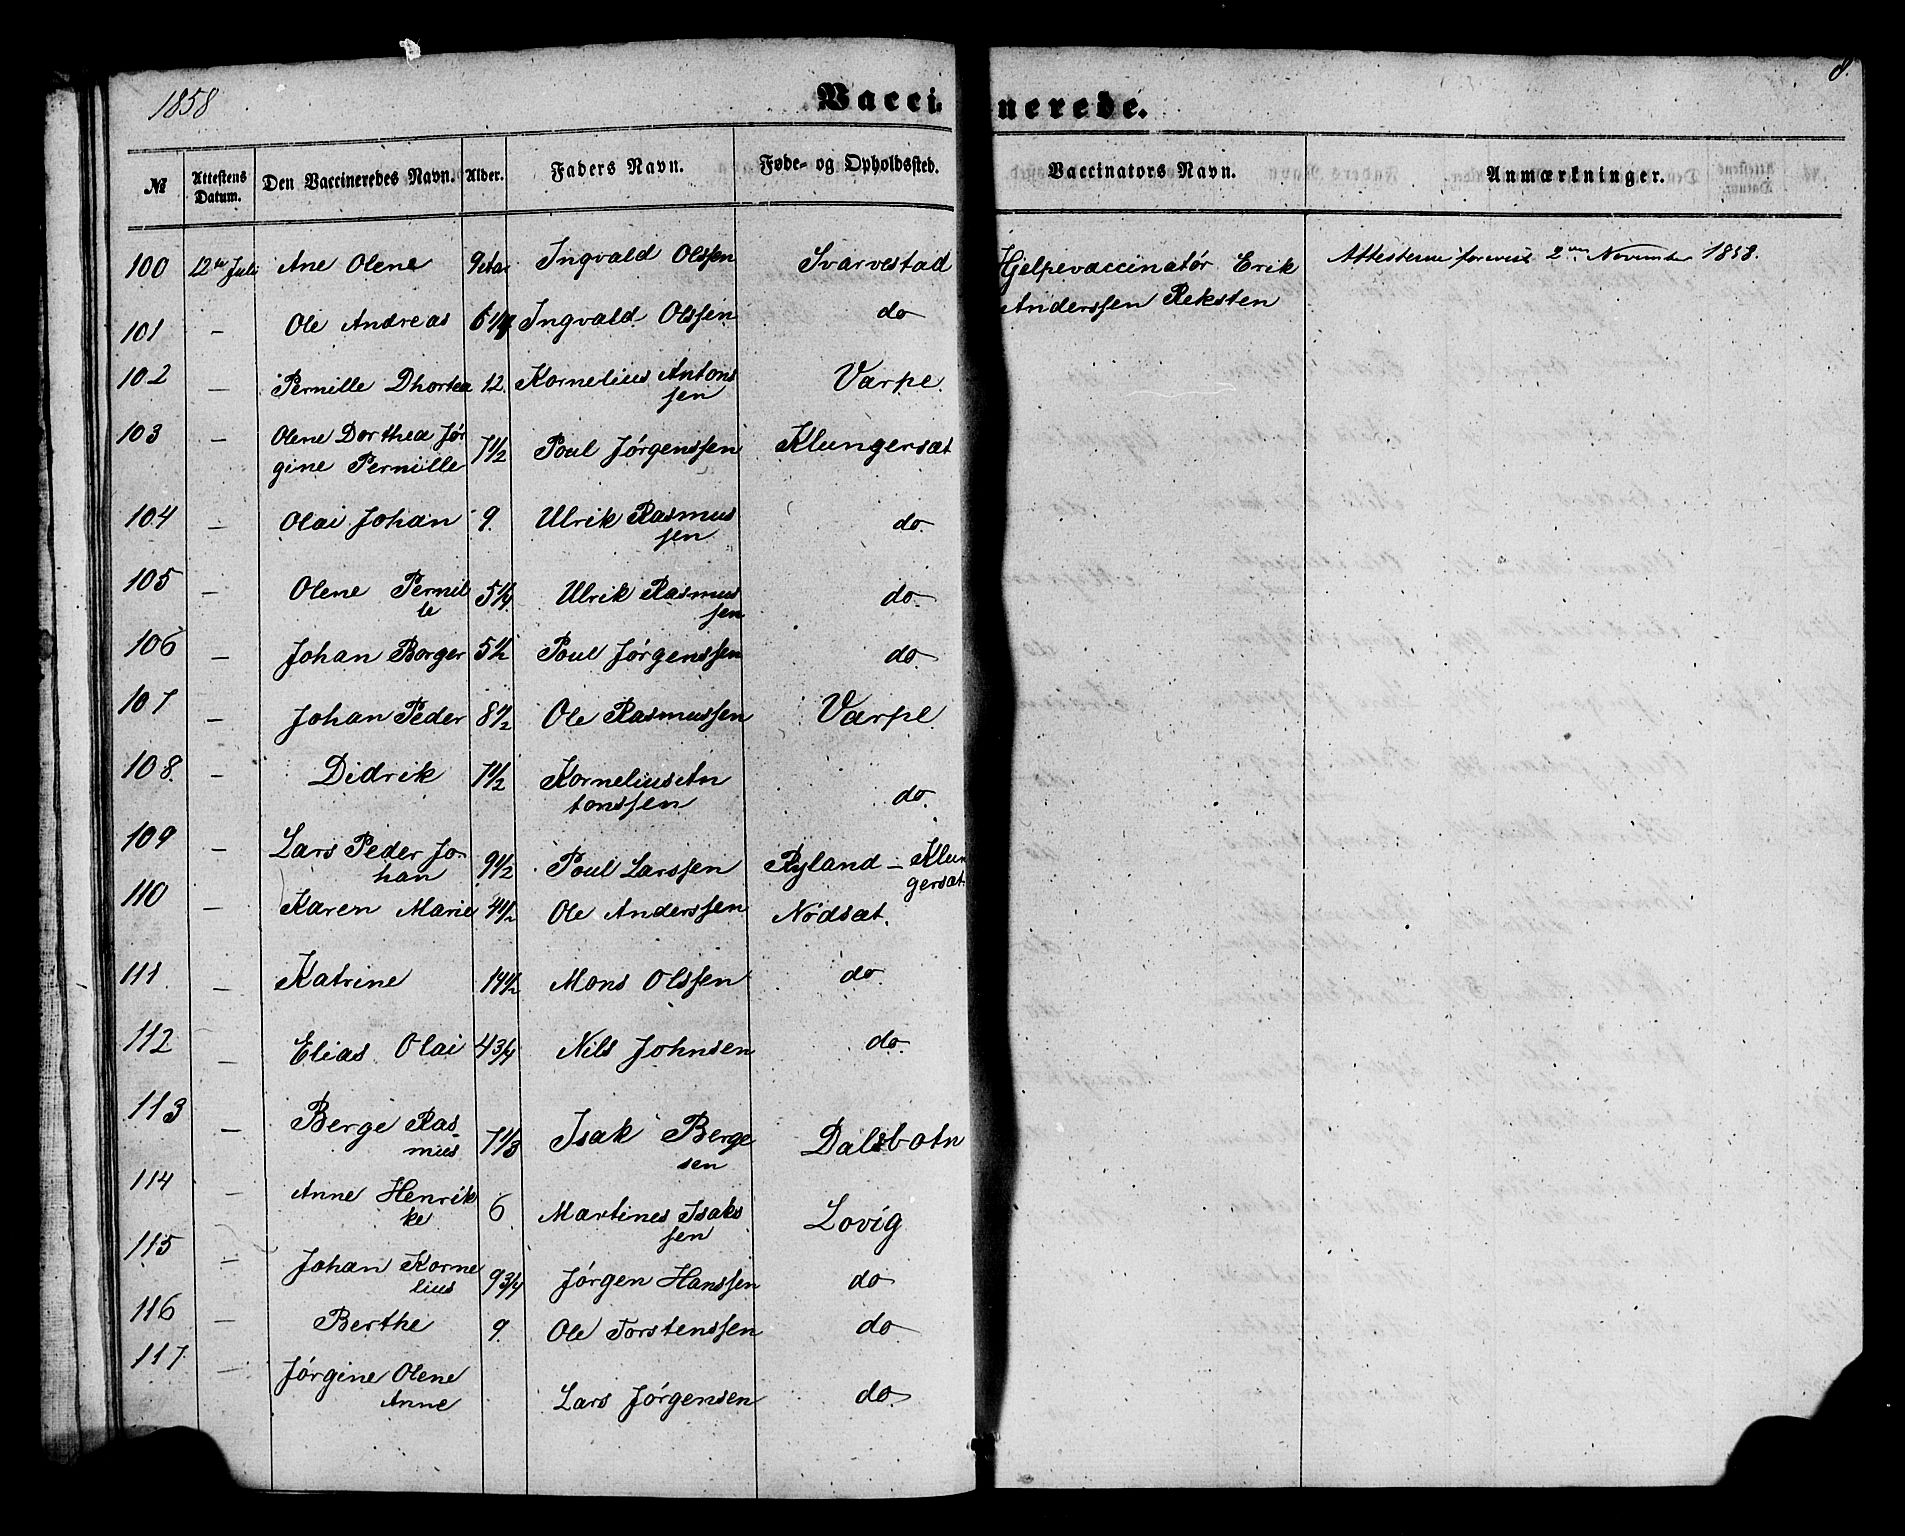 1858 Vaccinerede. 8.
№ Attestens Datum. Den Vaccineredes Navn. Alder. Faders Navn. Føde- og Opholdssted. Vaccinators Navn. Anmærkninger.
100 12te Juli Ane Olene 9 Aar Ingvald Olsen Svarvestad Hjelpevaccinatør Erik Attesterne foreviist 2den November 1858.
Anderssen Reksten
101 — Ole Andreas 6 Ingvald Olssen do
102 — Pernille Dhortea 12. Kornelius Antons
sen Varpe.
103 — Olene Dorthea Jør
gine Pernille 7 1/2 Poul Jørgenssen Klungersæt
104 — Olai Johan 9. Ulrik Rasmus
sen do.
105 — Olene Pernil
le 5 1/4 Ulrik Rasmus
sen do.
106 — Johan Borger 5 1/2 Poul Jørgenssen do.
107 — Johan Peder 8 1/2 Ole Rasmussen Varpe.
108. — Didrik 7 1/2 Kornelius An
tonssen do.
109 — Lars Peder Jo-
han 9 1/2 Poul Larssen Ryland — Klun
gersæt.
110 — Karen Marie 4 1/2 Ole Anderssen Nødsæt.
111. — Katrine 14 1/2 Mons Olssen do.
112 — Elias Olai 4 3/4 Nils Johnsen do.
113 — Berge Ras
mus 7 1/3 Isak Berge
sen Dalsbotn
114 — Anne Henrik
ke 6 Martines Isaks
sen Lovig
115 — Johan Korne
lius 9 3/4 Jørgen Hanssen do
116 — Berthe 9. Ole Torstenssen do.
117. — Jørgine Olene
Anne Lars Jørgensen do.